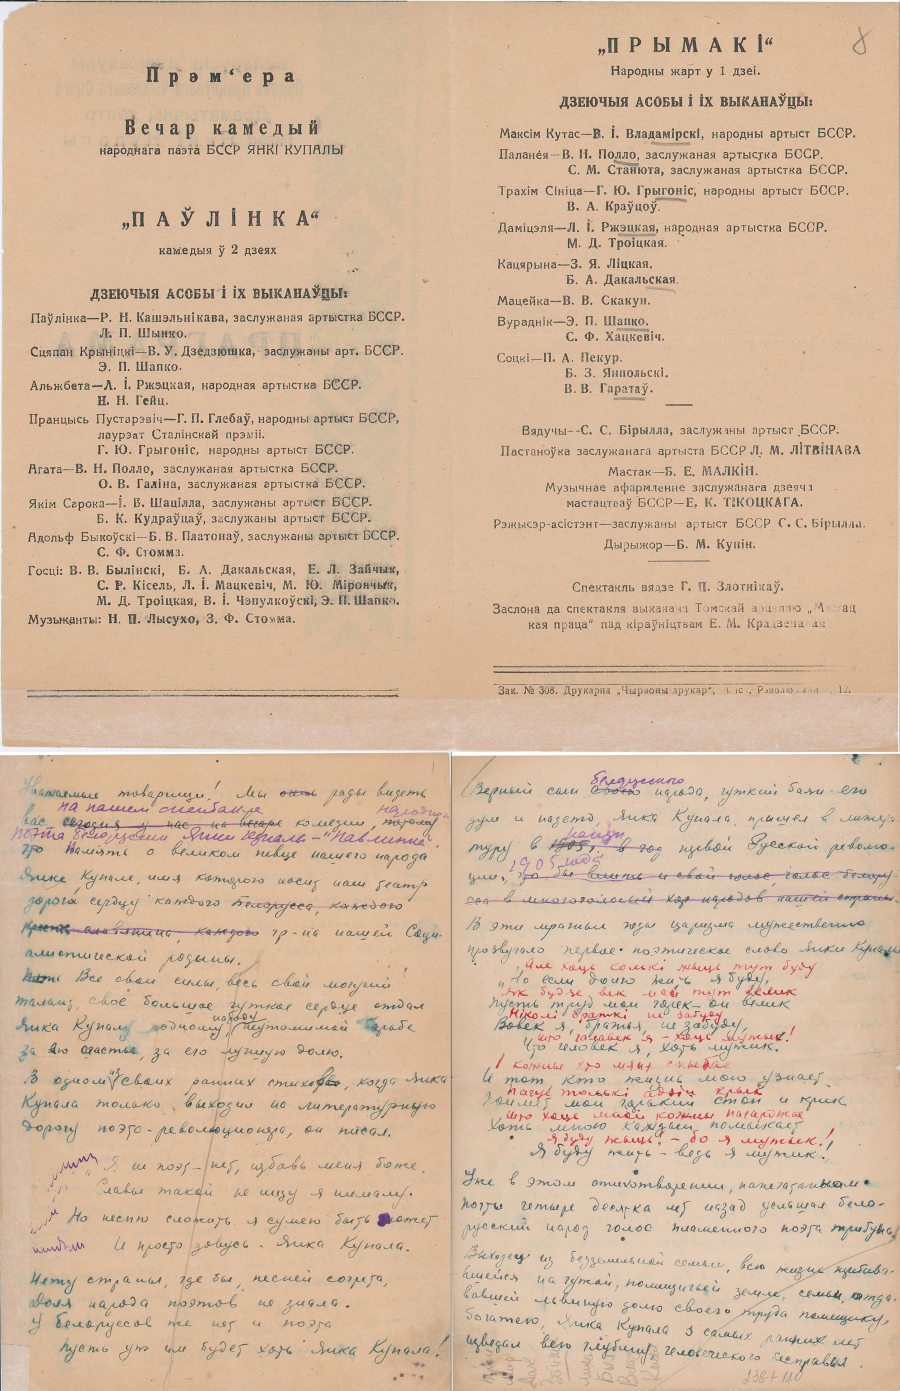 Прэм‘ера
Вечар камедый
народнага паэта БССР ЯНКІ КУПАЛЫ
„ПАЎЛІНКА“
камедыя ў 2 дзеях
ДЗЕЮЧЫЯ АСОБЫ І ІХ ВЫКАНАЎЦЫ:
Паўлінка—Р. Н. Кашэльнікава, заслужаная артыстка БССР.
Л. П. Шынко.
Сцяпан Крыніцкі—В. У. Дзедзюшка, заслужаны арт. БССР.
Э. П. Шапко.
Альжбета—Л. І. Ржэцкая, народная артыстка БССР.
Н. Н. Гейц.
Пранцысь Пустарэвіч—Г. П. Глебаў, народны артыст БССР,
лаурэат Сталінскай прэміі.
Г. Ю. Грыгоніс, народны артыст БССР.
Агата—В. Н. Полло, заслужаная артыстка БССР.
О. В. Галіна, заслужаная артыстка БССР.
Якім Сарока—І. Б. Шацілла, заслужаны артыст БССР.
Б. К. Кудраўцаў, заслужаны артыст БССР.
Адольф Быкоўскі—Б. В. Платонаў, заслужаны артыст БССР.
С. Ф. Стомма.
Госці: В. В. Былінскі, Б. А. Дакальская, Е. Л. Зайчык,
С. Р. Кісель, Л. І. Мацкевіч, М. Ю. Мірончык,
М. Д. Троіцкая, В. І. Чэпулкоўскі, Э. П. Шапко.
Музыканты: Н. П. Лысухо, З. Ф. Стомма.
8
„ПРЫМАКІ“
Народны жарт у 1 дзеі.
ДЗЕЮЧЫЯ АСОБЫ І ІХ ВЫКАНАЎЦЫ:
Максім Кутас—В. І. Владамірскі, народны артыст БССР.
Паланея—В. Н. Полло, заслужаная артыстка БССР.
С. М. Станюта, заслужаная артыстка БССР.
Трахім Сініца—Г. Ю. Грыгоніс, народны артыст БССР.
В. А. Краўцоў.
Даміцэля—Л. І. Ржэцкая, народная артыстка БССР.
М. Д. Троіцкая.
Кацярына—З. Я. Ліцкая.
Б. А. Дакальская.
Мацейка—В. В. Скакун.
Вураднік—Э. П. Шапко.
С. Ф. Хацкевіч.
Соцкі—П. А. Пекур.
Б. З. Янпольскі.
В. В. Гаратаў.
Вядучы--С. С. Бірылла, заслужаны артыст БССР.
Пастаноўка заслужанага артыста БССР Л. М. ЛІТВІНАВА
Мастак—Б. Е. МАЛКІН.
Музычнае афармленне заслужанага дзеяча
мастацтваў БССР—Е. К. ТІКОЦКАГА.
Рэжысэр-асістэнт—заслужаны артыст БССР С. С. Бірылла.
Дырыжор—Б. М. Купін.
Спектакль вядзе Г. П. Злотнікаў.
Заслона да спектакля выканана Томскай арцеллю „Мастац
кая праца“ пад кіраўніцтвам Е. М.
Зак. № 308. Друкарня „Чырвоны друкар“,
Уважаемые товарищи! Мы очень рады видеть
на нашем спектакле
вас сегодня у нас на вечере комедии народного
поэта Белоруссии Янки Купалы - "Павлинка".
Память о великом певце нашего народа
Янке Купале, имя которого носит наш театр
дорога сердцу каждого белорусса, каждого
славянина, каждого гр-на нашей Соци-
алистической родины.
Все свои силы, весь свой могучий
талант, своё большое чуткое сердце отдал
Янка Купала родному народу неутомимой борьбе
за его счастье, за его лучшую долю.
В одном из своих ранних стихов, когда Янка
Купала только выходил на литературную
дорогу поэта-революционера, он писал.
"Я не поэт - нет, избавь меня боже.
Славы такой не ищу я нимало.
Но песню сложить я сумею быть может
И просто зовусь - Янка Купала.
Нету страны, где бы, песней согрета,
Доля народа поэтов не знала.
У белоруссов же нет и поэта
Пусть уж им будет хоть Янка Купала!
белорусского
Верный сын своего народа, чуткий баян его
дум и надежд, Янка Купала пришел в литера
туру в 1905 г. в год первой Русской револю-
1905 года
ции, что бы влить и свой голос, голос белору
са в многоголосый хор народов нашей страны.
В эти мрачные годы царизма мужественно
прозвучало первое поэтическое слово Янки Купалы
"Але хоць колькі жыць тут буду
"Но если долго жить я буду,
Як будзе век мой тут вялік
Пусть труд мой горек - он велик
Ніколі браткі не забуду
Вовек я, братья, не забуду,
Што чалавек я - хоць мужык!
Что человек я, хоть мужик.
І кожны хто мяне спытае
И тот кто жизнь мою узнает
Пачуе толькі адзін крык
Поймет мой горький стон и крик
Што хоць мной кожны пагарджае
Хоть мною каждый помыкает
Я буду жыць! - бо я мужык!
Я буду жить - ведь я мужик!
Уже в этом стихотворении, напечатанном
почти четыре десятка лет назад услышал бело-
русский народ голос пламенного поэта трибуна.
Выходец из безземельной семьи, всю жизнь
на чужой, помещичьей земле, семьи, отда-
вавшей львиную долю своего труда помещику,
богатею, Янка Купала з самых ранних лет
изведал всю глубину человеческого бесправия.
238+110